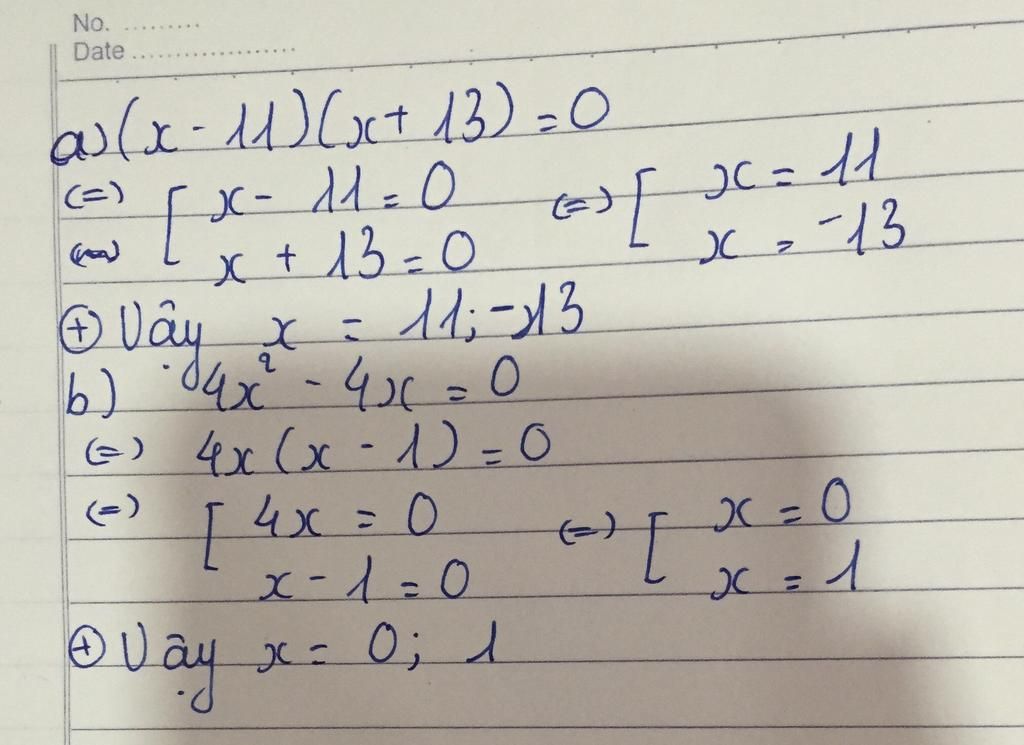 No. .........
Date ...................
a) (x - 11)(x + 13) = 0
(=) [ x - 11 = 0 (=) [ x = 11
x + 13 = 0 x = -13
⊕ Vậy x = 11; -13
b) 4x² - 4x = 0
(=) 4x (x - 1) = 0
(=) [ 4x = 0 (=) [ x = 0
x - 1 = 0 x = 1
⊕ Vậy x = 0; 1